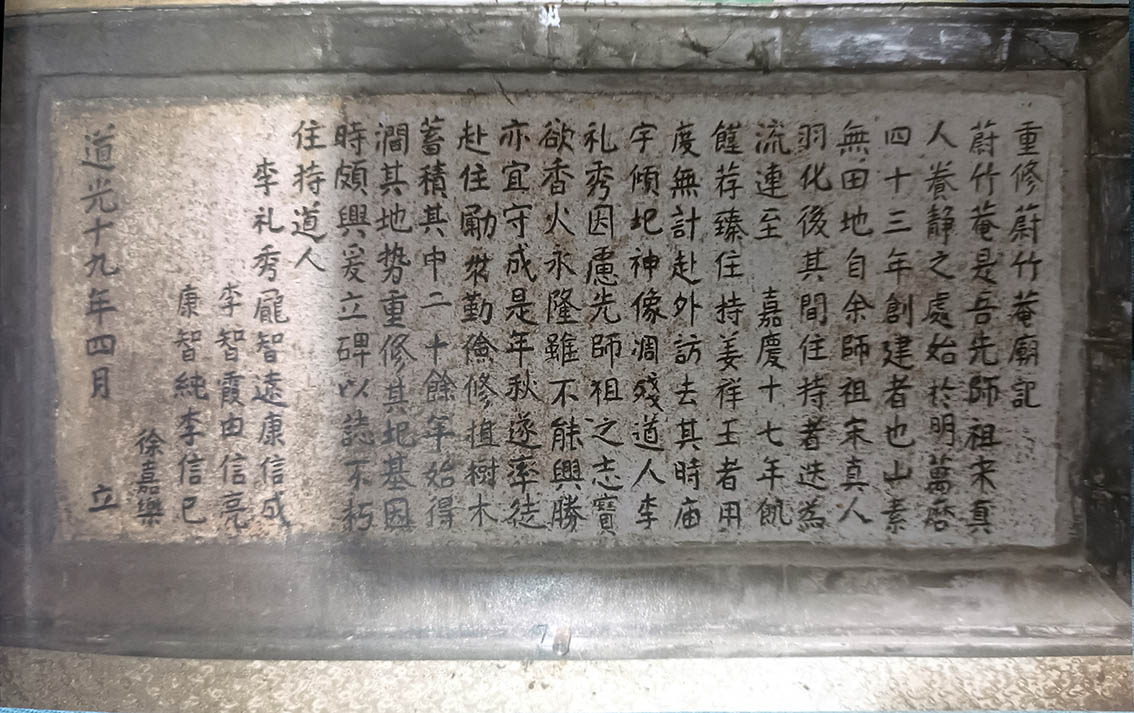 重修蔚竹菴廟記
蔚竹菴是吾先師祖宋真
人養靜之處始於明萬曆
四十三年創建者也山素
無田地自余師祖宋真人
羽化後其間住持者迭為
流連至嘉慶十七年飢
饉荐臻住持姜祥玉者用
度無計赴外訪去其時庙
宇傾圮神像凋殘道人李
礼秀因慮先師祖之志寶
欲香火永隆雖不能興勝
亦宜守成是年秋遂率徒
赴住勵兢勤儉修植樹木
蓄積其中二十餘年始得
澗其地势重修其圮基因
時頗興爰立碑以誌不朽
住持道人
李礼秀龐智遠康信成
李智霞由信亮
康智純李信已
徐嘉樂
道光十九年四月 立